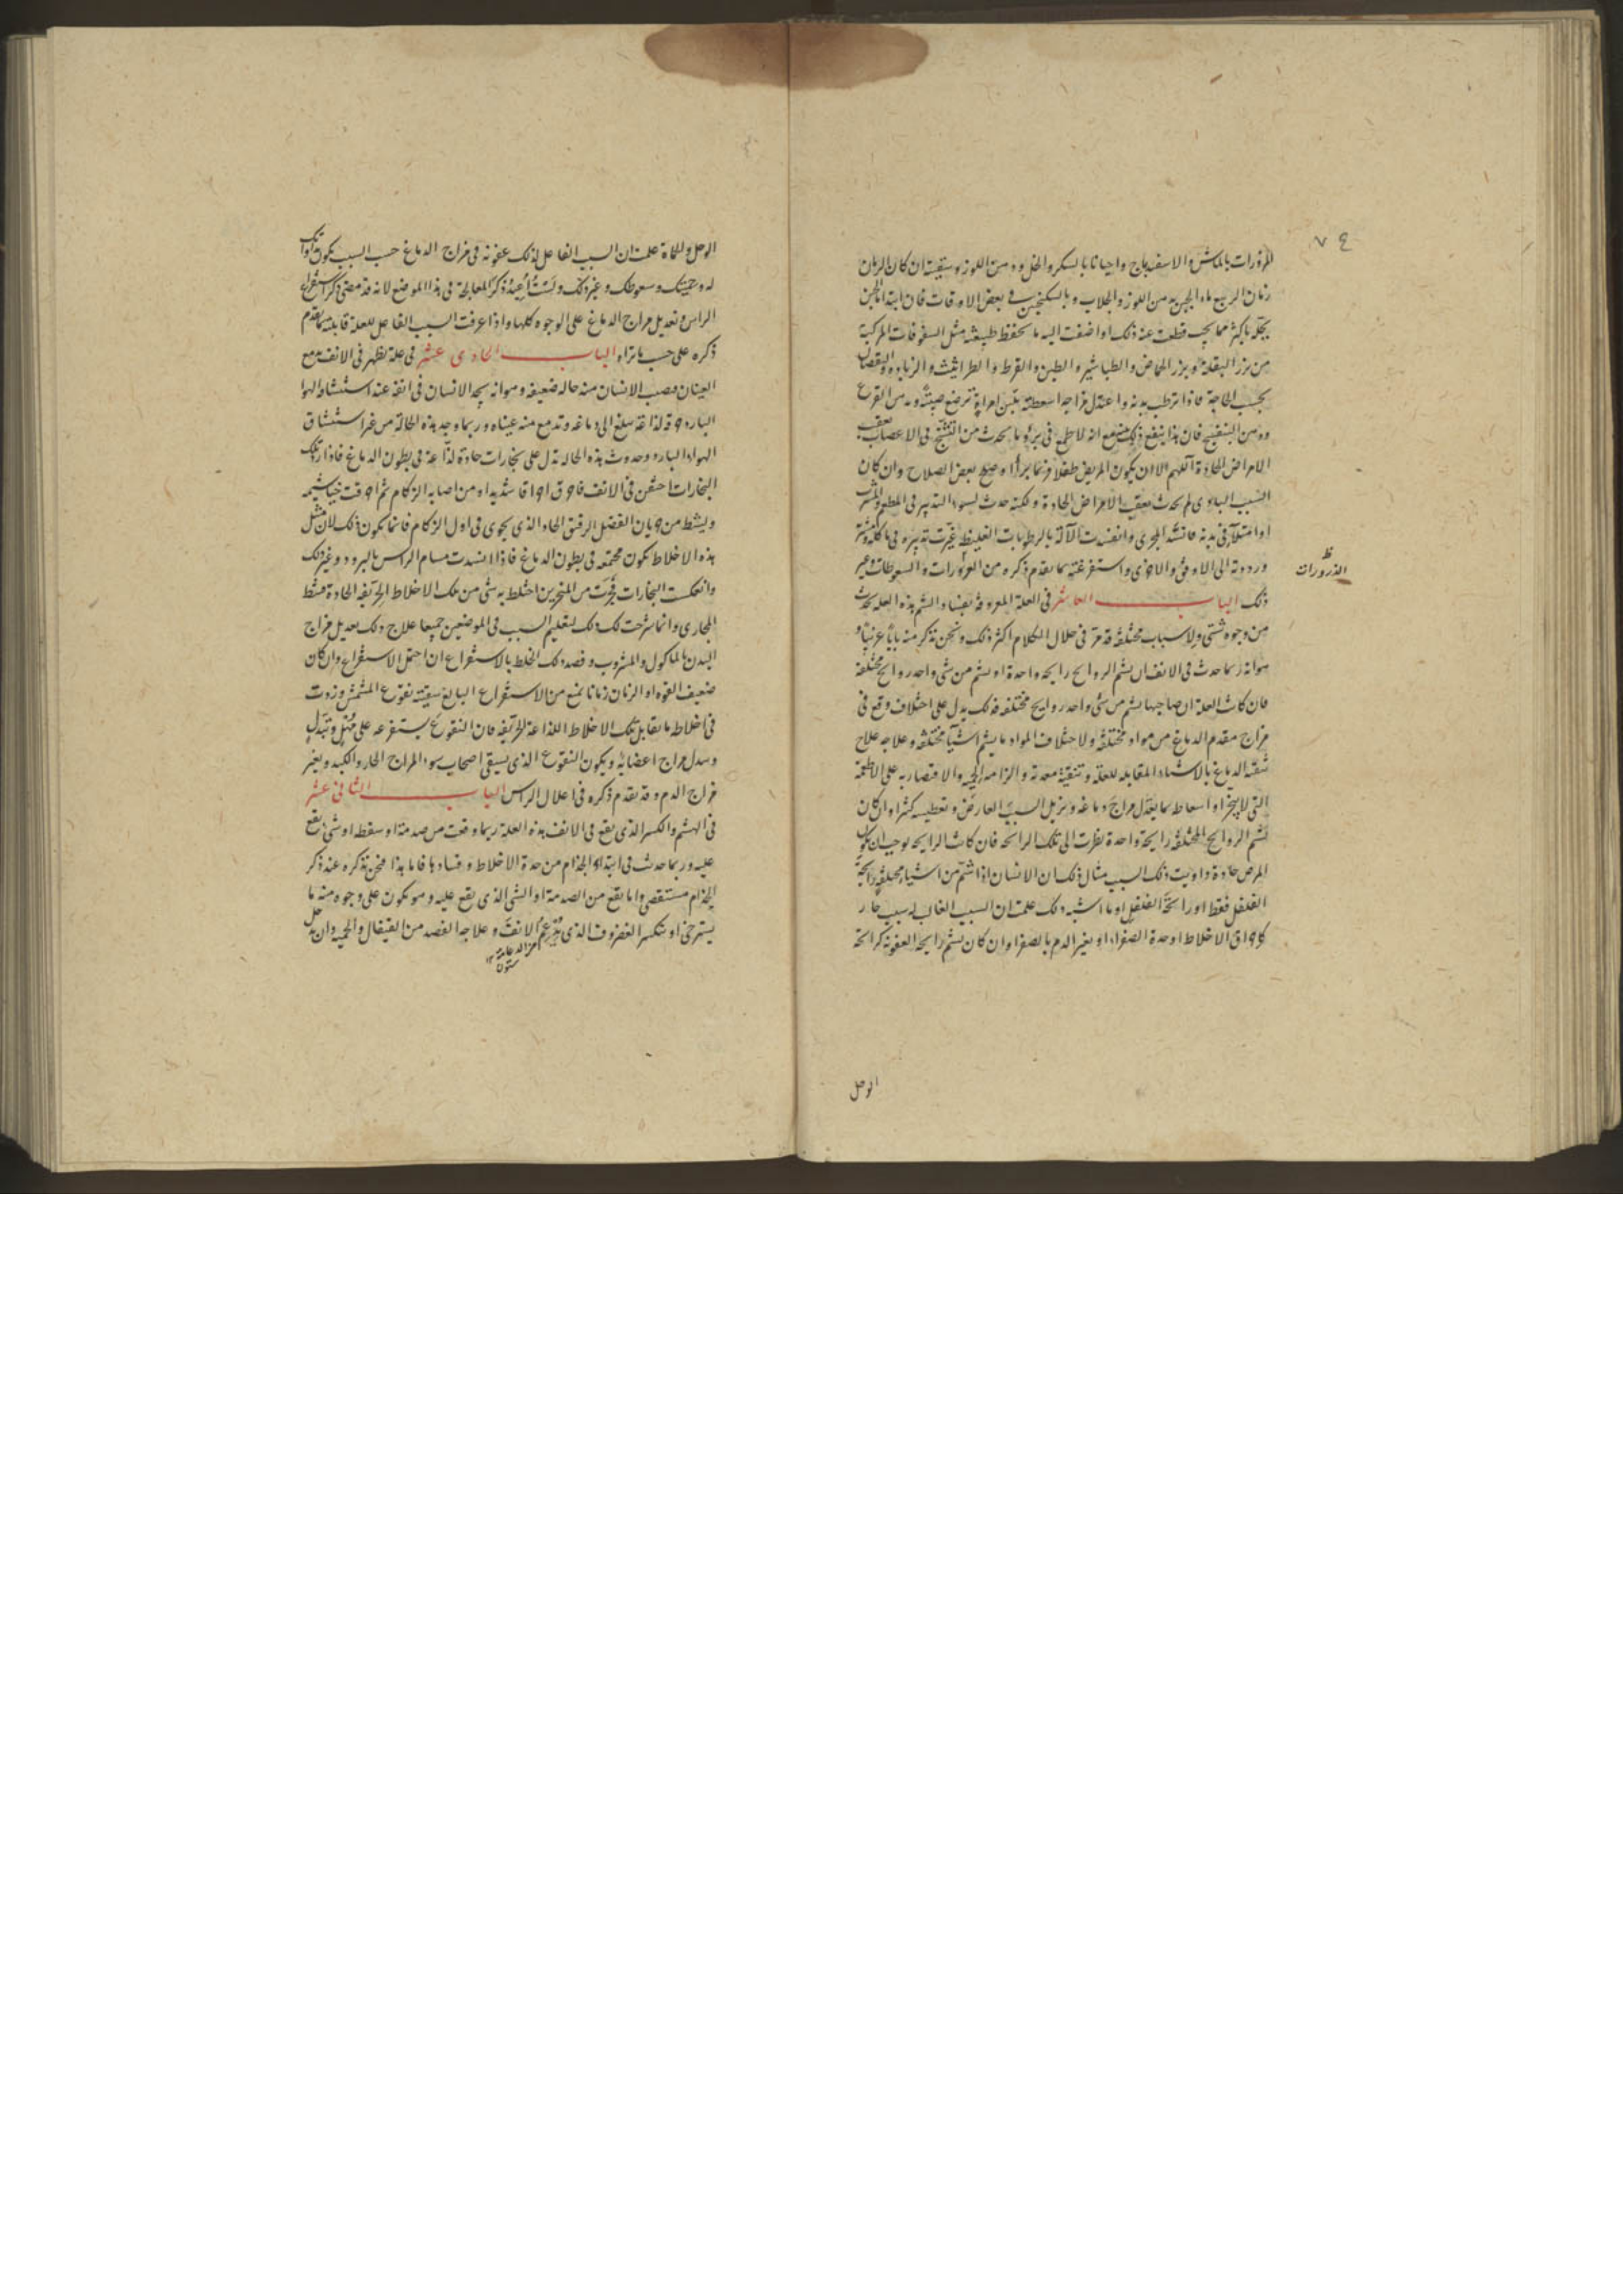 ٧٤
المزورات بالماش والاسفيدباج واحيانا بالسكر والخل ودهن اللوز وسقيته ان كان الزمان
زمان الربيع ماء الجبن بدهن اللوز والجلاب وبالسكنجبين في بعض الاوقات فان ابتدا الجبن
باكثر مما يجب قطعت عنه ذلك او اضفت اليه ما يحفظ طبيعته مثل السفوفات المركبة
من بزر البقلة وبزر الحماض والطباشير والطين والقرط والطراثيث والزيادة والنقصان
بحسب الحاجة فاذا ترطب بدنه واعتدل مزاجه اسعطته بلبن امراة ترضع صبية ودهن القرع
ودهن البنفسج فان هذا ينفع مع انه لا طمع في برؤ ما يحدث من التشنج في الاعصاب بعقب
الامراض الحادة اللهم الا ان يكون المريض طفلا فربما برأ او صلح بعض الصلاح وان كان
السبب البادي لم يحدث بعقب الامراض الحادة ولكنه حدث لسوء التدبير في المطعم والمشرب
او امتلاء في بدنه فانسد المجرى وانفسدت الآلة بالرطوبات الغليظة غيرت تدبيره في ماكله ومشربه
ورددته الى الاوفق والاحرى واستفرغته بما تقدم ذكره من الغرورات والسعوطات وغير
الذرورات
ذلك الباب العاشر في العلة المعروفة بفساد الشم هذه العلة تحدث
من وجوه شتى ولاسباب مختلفة قد مر في خلال الكلام اكثر ذلك ونحن نذكر منه بابا غريبا و
هو انه ربما حدث في الانف ان يشم الروايح رايحة واحدة او يشم من شي واحد روايح مختلفة
فان كانت العلة ان صاحبها يشم من شي واحد روايح مختلفة فذلك يدل على اختلاف وقع في
مزاج مقدم الدماغ من مواد مختلفة ولاختلاف المواد ما يشم اشياء مختلفة وعلاجه علاج
تنقية الدماغ بالاشياء المقابلة للعلة وتنقية معدته والزامه الحمية والاقتصار به على الاطعمة
التي لا يبخر او اسعاطه بما يعدل مزاج دماغه ويزيل السبب العارض وتعطيسه كثيرا وان كان
يشم الروايح المختلفة رايحة واحدة نظرت الى تلك الرائحة فان كانت الرايحة توجب ان يكون
المرض حادة داويت ذلك السبب مثال ذلك ان الانسان اذا شم من اشياء مختلفة رايحة
الفلفل فقط او رائحة الفلفل او ما اشبه ذلك علمت ان السبب الغالب له سبب حار
كاحراق الاخلاط او حدة الصفراء او تغير الدم بالصفرا وان كان يشم رايحة العفونة كرائحة
الوحل
الوحل والحماة علمت ان السبب الفاعل لذلك عفونة في مزاج الدماغ حسب السبب يكون
له وتنشيقك وسعوطك وغير ذلك ولست اعيد ذكر المعالجة في هذا الموضع لانه قد مضى ذكر استفراغ
الراس وتعديل مزاج الدماغ على الوجوه كلها واذا عرفت السبب الفاعل للعلة قابلته بما تقدم
ذكره على حسب ما تراه الباب الحادي عشر في علة تظهر في الانف مع
العينان فصب الانسان منه حالة ضعيفة وهو انه يجد الانسان في انفه عند استنشاق الهوا
البارد حرقة لذاعة تبلغ الى دماغه وتدمع منه عيناه وربما وجد هذه الحالة من غير استنشاق
الهواء البارد وحدوث هذه الحالة تدل على بخارات حادة لذاعة في بطون الدماغ فاذا
البخارات احتقن في الانف فاحرق احراقا شديدا ومن اصابه الزكام ثم احرقت خياشيمه
ويشط من جريان الفضل الرقيق الحاد الذي يجري في اول الزكام فانما يكون ذلك لان مثل
هذه الاخلاط تكون مجتمعة في بطون الدماغ فاذا انسدت مسام الراس بالبرد وغير ذلك
وانعكست البخارات فخرجت من المنخرين اختلط به شي من تلك الاخلاط الحريفة الحادة فيشط
المجاري وانما شرحت لك ذلك لتعليم السبب في الموضعين جميعا علاج ذلك تعديل مزاج
البدن بالماكول والمشروب وقصد ذلك الخلط بالاستفراغ ان احتمل الاستفراغ وان كان
ضعيف القوة او الزمان زمانا يمنع من الاستفراغ البالغ سقيته نقوع المشمش وزدت
في اخلاطه ما يقابل تلك الاخلاط اللذاعة الحريفة فان النقوع يستفرغه على مهل وتبدل
مزاج اعضائه ويكون النقوع الذي يسقى اصحاب سوء المزاج الحار والكبد وتغير
مزاج الدم وقد تقدم ذكره في اعلال الراس الباب الثاني عشر
في الهشم والكسر الذي يقع في الانف هذه العلة ربما وقعت من صدمة او سقطة او شي يقع
عليه وربما حدث في ابتداء الجذام من حدة الاخلاط وفسادها فاما هذا فنحن نذكره عند ذكر
الجذام مستقصى واما يقع من الصدمة او الشي الذي يقع عليه وهو يكون على وجوه منه ما
يسترخي او ينكسر الغضروف الذي يدعم الانف وعلاجه الفصد من القيفال والحمية وان
ستون